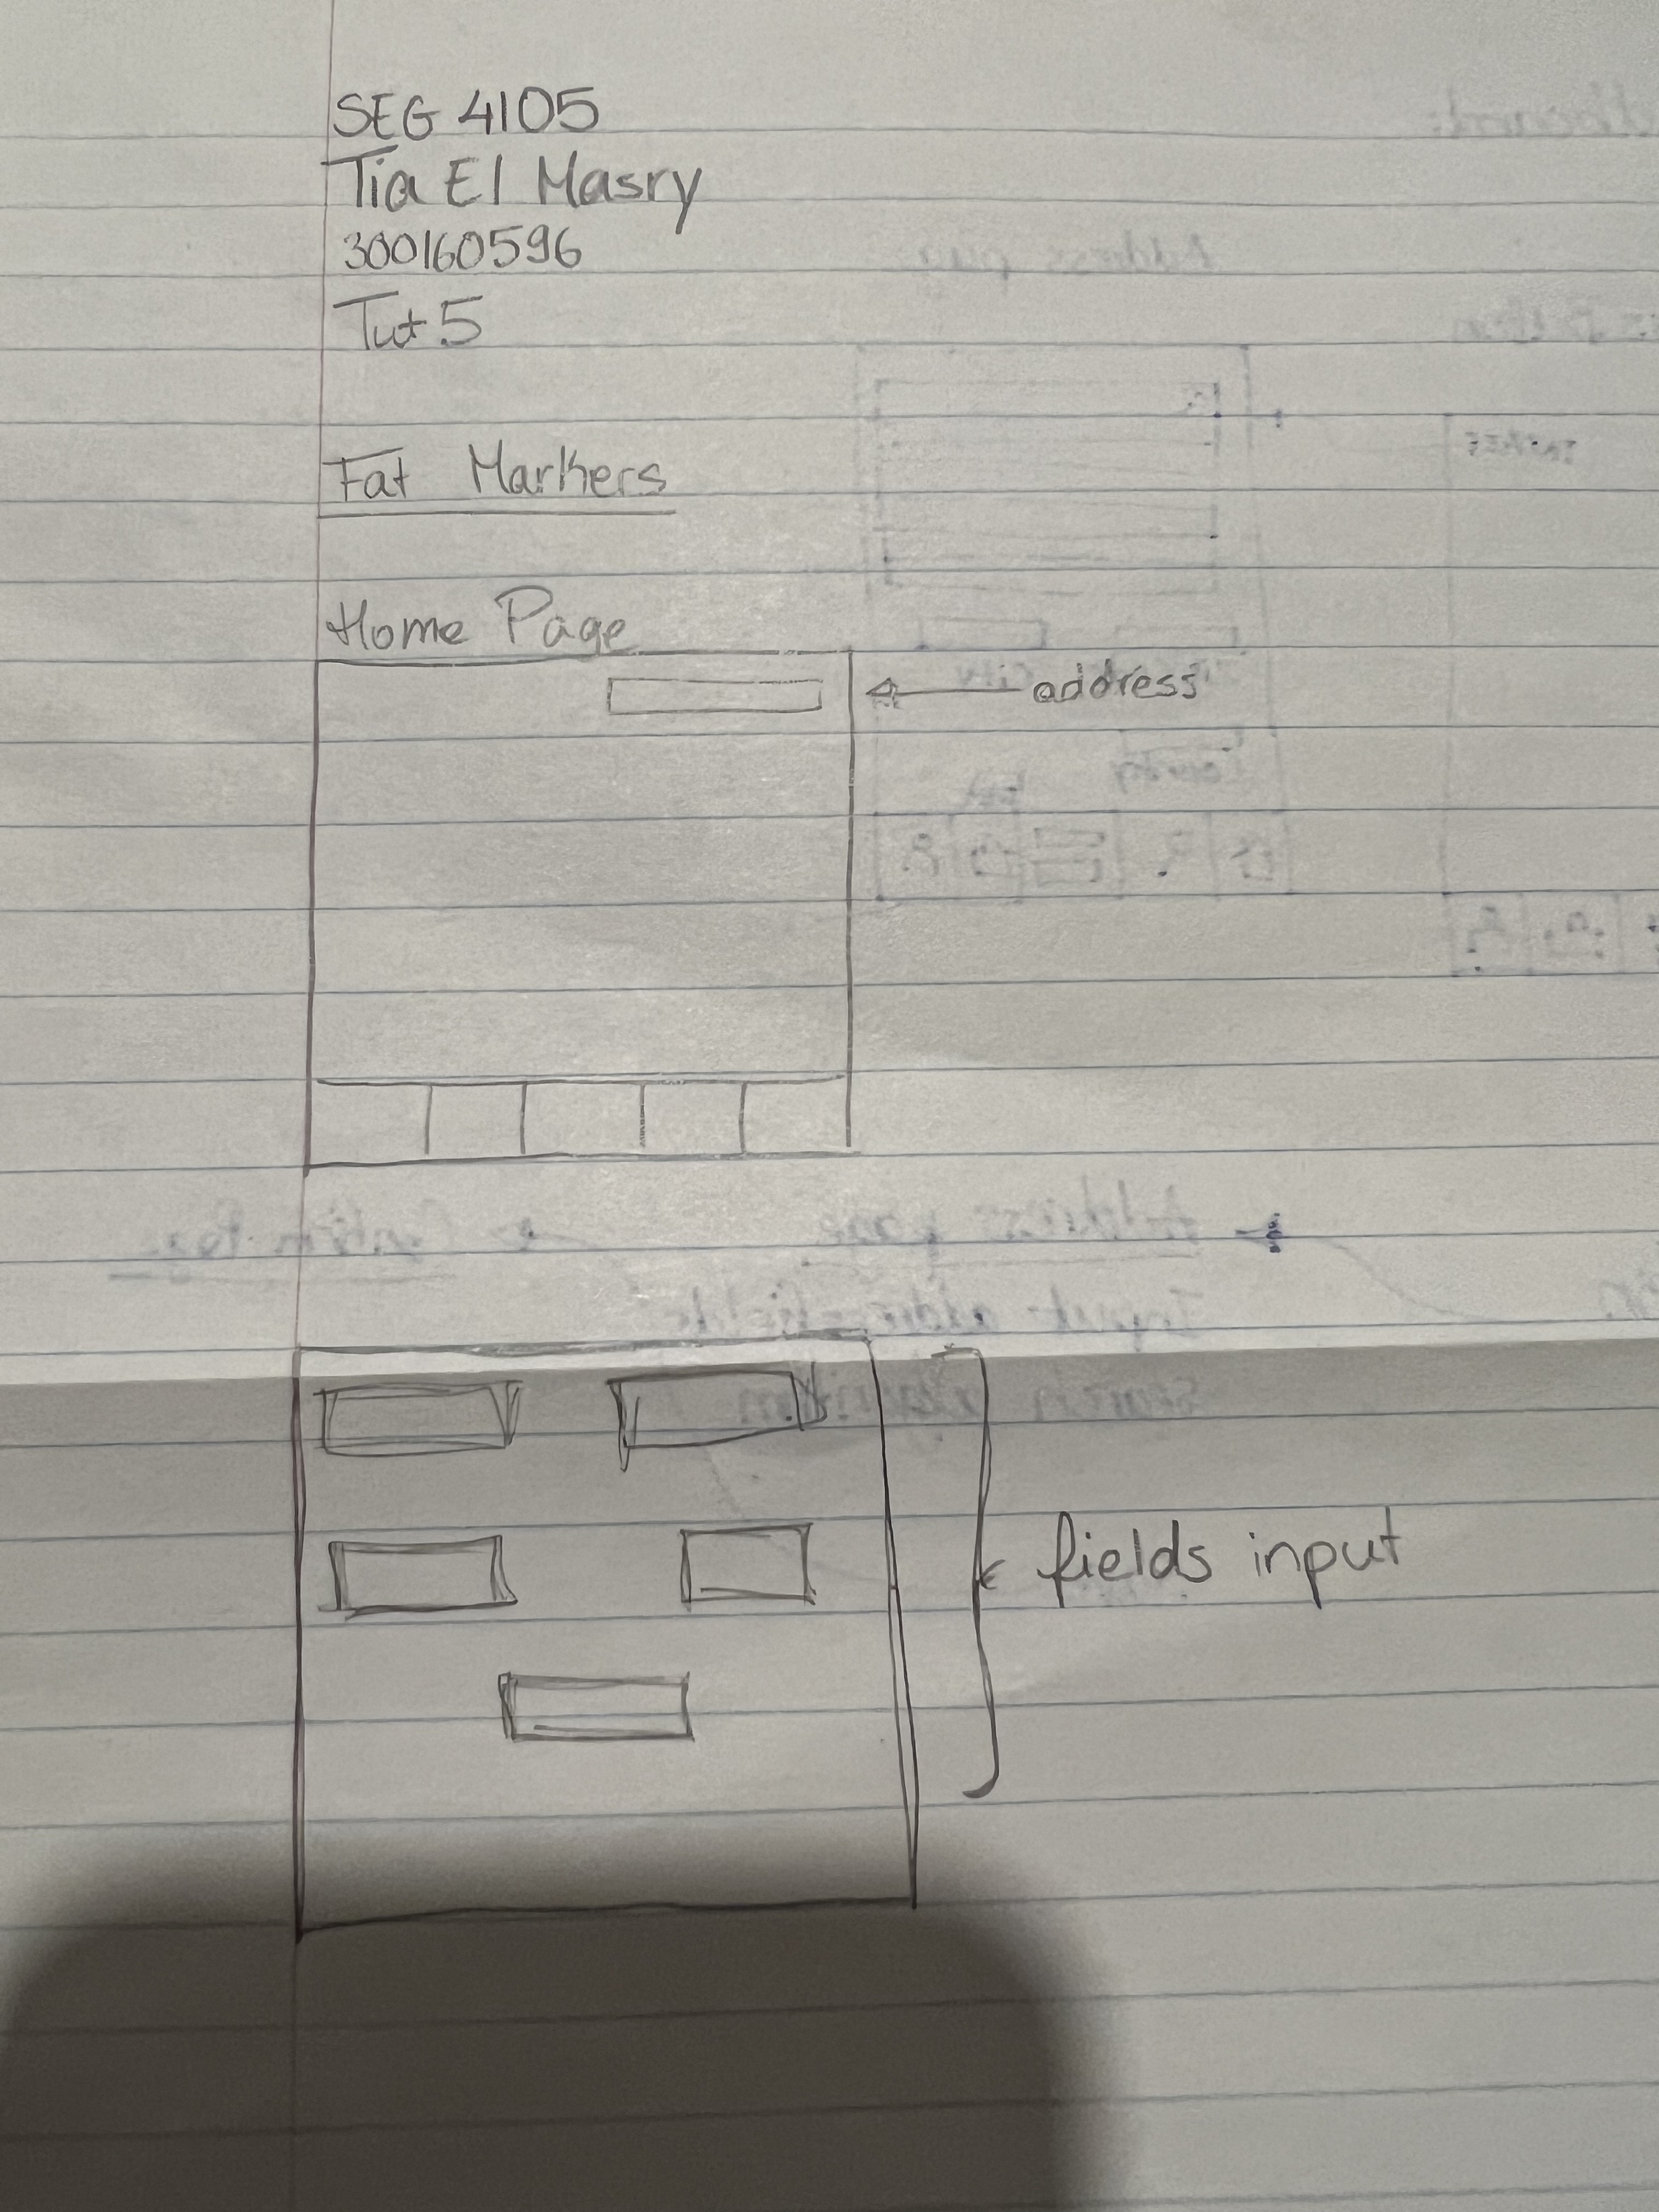 SEG 4105
Tia El Masry
300160596
Tut 5
Fat Markers
Home Page
address
fields input
Address page